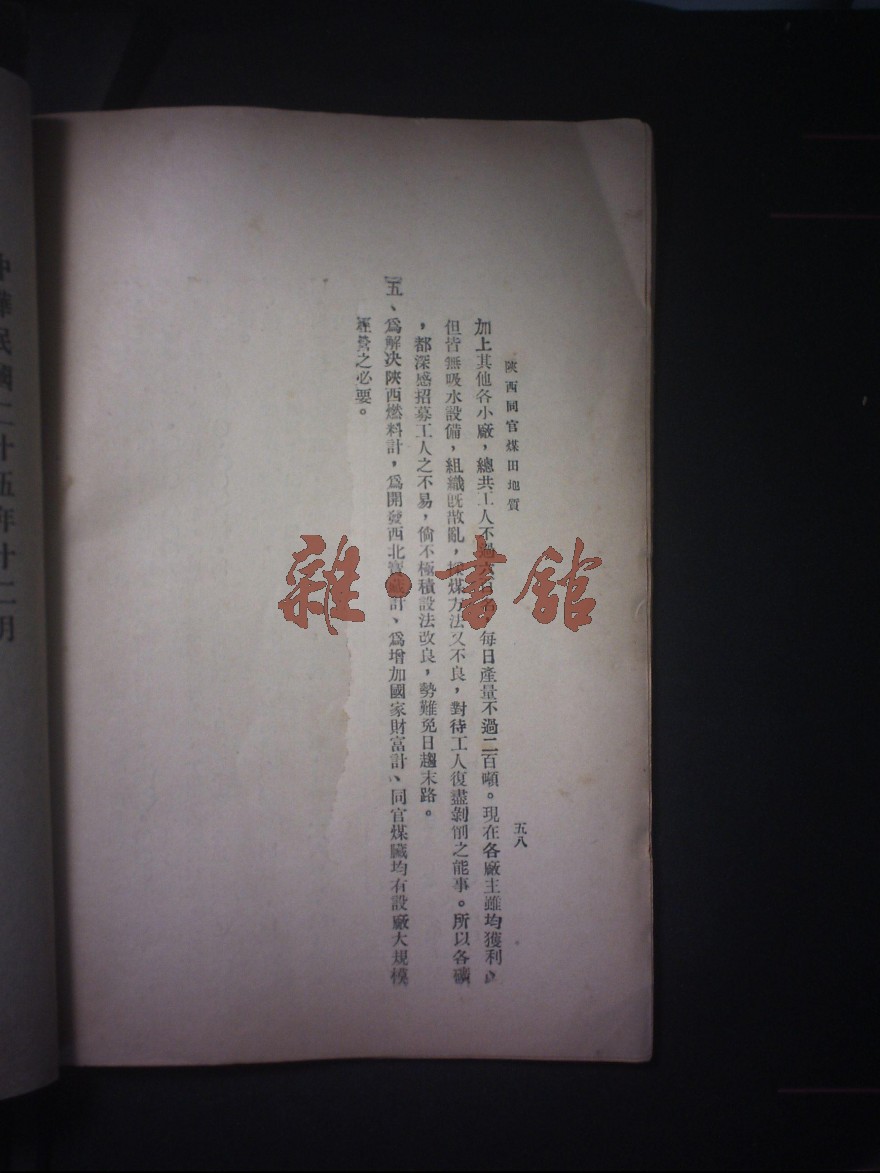 陝西同官煤田地質
五八
加上其他各小廠，總共工人不過六百名，每日產量不過二百噸。現在各廠主雖均獲利，
但皆無吸水設備，組織既散亂，採煤方法又不良，對待工人復盡剝削之能事。所以各礦
，都深感招募工人之不易，倘不極積設法改良，勢難免日趨末路。
五、爲解決陝西燃料計，爲開發西北寶藏計、爲增加國家財富計、同官煤礦均有設廠大規模
經營之必要。
中華民國二十五年十二月
雜·書館